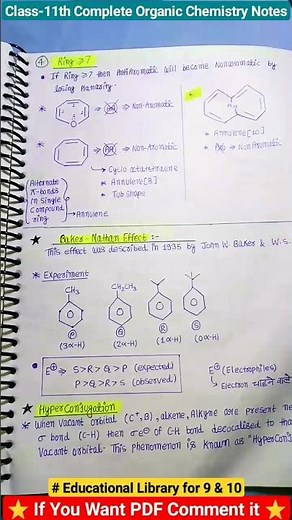 Class-11th Complete Organic Chemistry Notes
④ Ring ≥ 7
• If Ring ≥ 7 then AntiAromatic will become NonAromatic by
losing Planarity.
⇒ Non-Aromatic
⇒ Non-Aromatic
→ Cyclo octatetraene
* Annulene[8]
* Tub shape
* Annulene[10]
⇒ Non Aromatic
(Alternate
π-bonds
in Single
Compound
ring)
→ Annulene
★ Baker-Nathan Effect :-
This effect was described in 1935 by John W. Baker & W.S.
* Experiment
CH₃
CH₂CH₃
P
Q
R
S
(3α-H)
(2α-H)
(1α-H)
(0α-H)
• E⊕ ⇒ S>R>Q>P (expected)
P>Q>R>S (observed)
E⊕ (Electrophiles)
↳ Electron चाहने वाले
★ HyperConjugation
* When Vacant orbital (C⁺,B), alkene, Alkyne are present
σ bond (C-H) then σe⊖ of C-H bond decocalised to
Vacant orbital. This phenomenon is known as "HyperConj
# Educational Library for 9 & 10
If You Want PDF Comment it